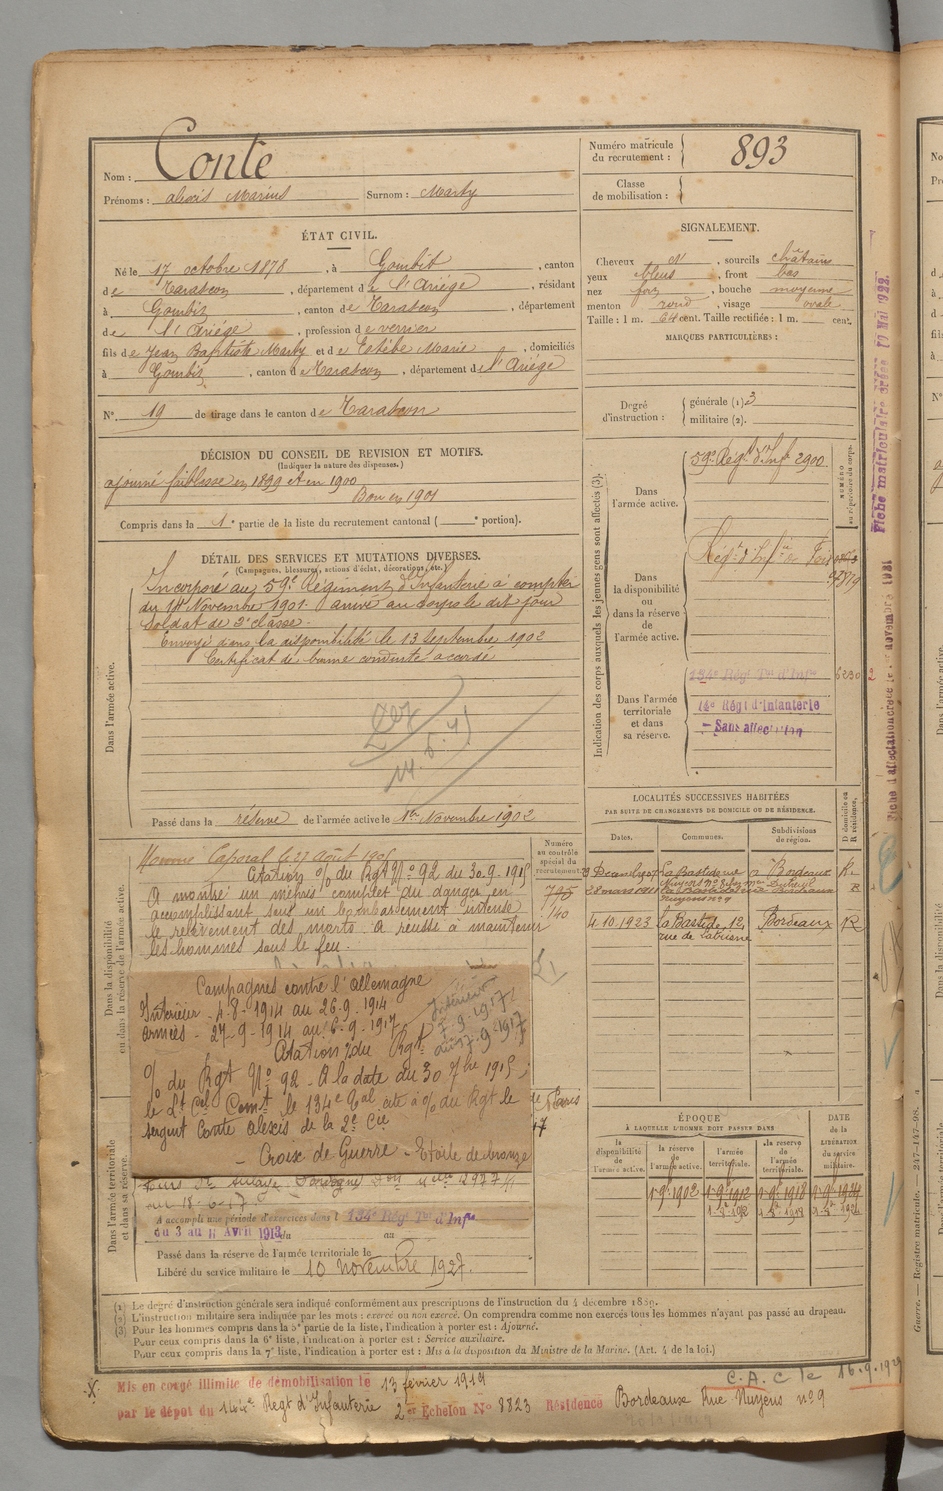 Nom : Conte
Prénoms : alexis Marius Surnom : Marty
Numéro matricule du recrutement : 893
Classe de mobilisation :
ÉTAT CIVIL.
Né le 17 octobre 1878, à Gourbit, canton
de Tarascon, département de l'Ariège, résidant
à Gourbit, canton de Tarascon, département
de l'Ariège, profession de verrier
fils de Jean Baptiste Marty et de Estèbe Marie, domiciliés
à Gourbit, canton de Tarascon, département de l'Ariège
N° 19 de tirage dans le canton de Tarascon
SIGNALEMENT.
Cheveux , sourcils châtains
yeux bleus, front bas
nez fort, bouche moyenne
menton rond, visage ovale
Taille : 1 m. 64 cent. Taille rectifiée : 1 m. cent.
MARQUES PARTICULIÈRES :
Degré d'instruction : générale (1) 3
militaire (2).
DÉCISION DU CONSEIL DE REVISION ET MOTIFS.
(Indiquer la nature des dispenses.)
ajourné faiblesse en 1899 et en 1900
Bon en 1901
Compris dans la 1e partie de la liste du recrutement cantonal ( e portion).
DÉTAIL DES SERVICES ET MUTATIONS DIVERSES.
(Campagnes, blessures, actions d'éclat, décorations, etc.)
Dans l'armée active.
Incorporé au 59e Régiment d'Infanterie à compter
du 14 Novembre 1901. arrivé au corps le dit jour
Soldat de 2e classe.
Envoyé dans la disponibilité le 13 Septembre 1902
Certificat de bonne conduite accordé
Passé dans la réserve de l'armée active le 1er Novembre 1902
Indication des corps auxquels les jeunes gens sont affectés (3).
NUMÉRO au répertoire du corps.
Dans l'armée active.
59e Régt d'Inf 2900
Dans la disponibilité ou dans la réserve de l'armée active.
Régt d'Infie de Foix
Dans l'armée territoriale et dans sa réserve.
134e Régt Tal d'Infie 6230
14e Régt d'Infanterie
- Sans affectation
Fiche matriculaire créée 17 Mai 1922.
Fiche d'affectation créée le 1er novembre 1921
Dans la disponibilité ou dans la réserve de l'armée active.
Nommé Caporal le 27 août 1905
Citation O/ du Rgt N° 92 du 30.9.1915
A montré un mépris complet du danger en
accomplissant sous un bombardement intense
le relèvement des morts. A réussi à maintenir
les hommes sous le feu.
Numéro au contrôle spécial du recrutement
140
Campagnes contre l'Allemagne
Intérieur - 4-8-1914 au 26-9-1914
armées - 27-9-1914 au 6-9-1917
Intérieur
7.9.1917
au 17.9.1917
Citation O/ du Rgt
O/ du Rgt N° 92 - A la date du 30 7bre 1915
le Lt Cel Comt le 134e Tal cite à O/ du Rgt le
sergent Conte Alexis de la 2e Cie
- Croix de Guerre - Etoile de bronze
Dans l'armée territoriale et dans sa réserve.
A accompli une période d'exercices dans l 134e Régt Tal d'Infie
du 3 au 11 Avril 1913 du au
Passé dans la réserve de l'armée territoriale le
Libéré du service militaire le 10 novembre 1927.
LOCALITÉS SUCCESSIVES HABITÉES
PAR SUITE DE CHANGEMENTS DE DOMICILE OU DE RÉSIDENCE.
Dates. Communes. Subdivisions de région. D domicile ou R résidence.
Décemb. 1907 La Bastide Bordeaux R
28 mars 1911 Bordeaux R
4.10.1923 la Bastide, 12, Bordeaux R
ÉPOQUE
À LAQUELLE L'HOMME DOIT PASSER DANS
la disponibilité de l'armée active. la réserve de l'armée active. l'armée territoriale. la réserve de l'armée territoriale. DATE de la LIBÉRATION du service militaire.
1-9-1902 1-9-1912 1-9-1918 1-9-1924
(1) Le degré d'instruction générale sera indiqué conformément aux prescriptions de l'instruction du 4 décembre 1889.
(2) L'instruction militaire sera indiquée par les mots : exercé ou non exercé. On comprendra comme non exercés tous les hommes n'ayant pas passé au drapeau.
(3) Pour les hommes compris dans la 5e partie de la liste, l'indication à porter est : Ajourné.
Pour ceux compris dans la 6e liste, l'indication à porter est : Service auxiliaire.
Pour ceux compris dans la 7e liste, l'indication à porter est : Mis à la disposition du Ministre de la Marine. (Art. 4 de la loi.)
C.A.C le 16.9.1929
Mis en congé illimité de démobilisation le 13 février 1919
par le dépôt du 144e Regt d'Infanterie 2er Echelon N° 8823 Résidence Bordeaux Rue Nuyens n° 9
Guerre. — Registre matricule. — 247-147-98.